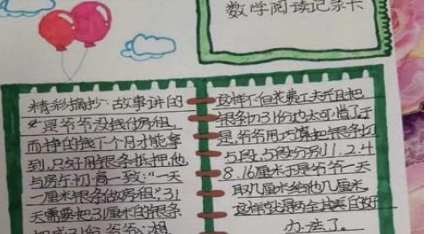 数学阅读记录卡
精彩摘抄:故事讲的
是爷爷没钱付房租
而挣的钱下个月才能拿
到,只好用银条抵押,他
与房东初商一致:"一天
一厘米银条做房租"31
天需要把31厘米的银条
这样不但花费工夫而且把
银条切31份也太可惜了于
是,爷爷用巧算把银条切
5段,5段分别1.2.4
8.16厘米于是爷爷一天
取几厘米给他几厘米,
这样实是两全其美的好
办法了。